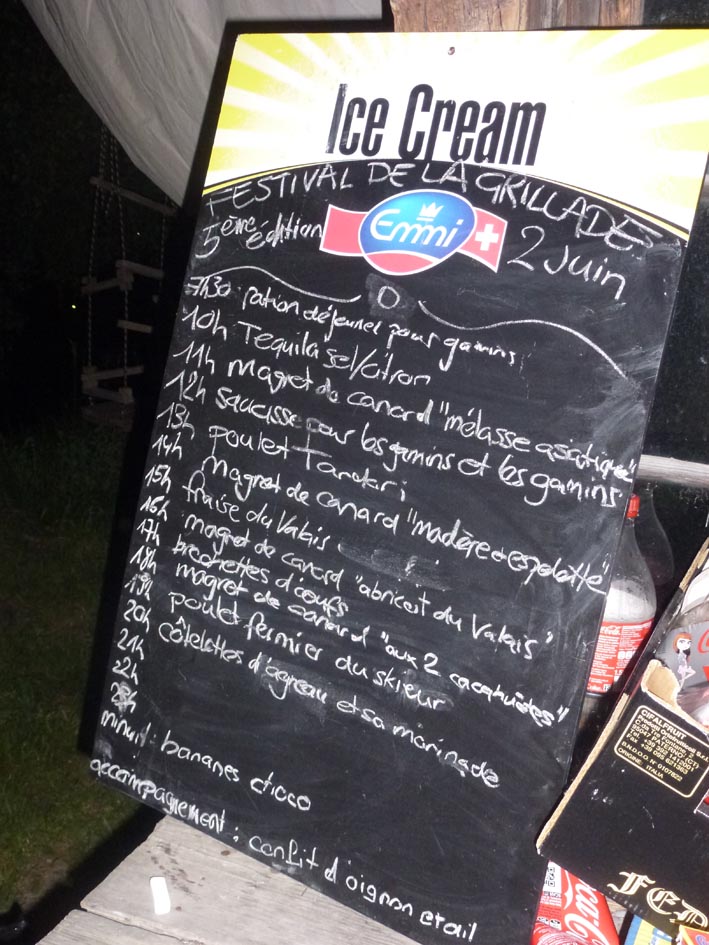 Ice Cream
FESTIVAL DE LA GRILLADES
5ème édition
Emmi
2 Juin
7h30 pation déjeuner pour gamins
10h Tequila sel/citron
11h magret de canard "mélasse asiatique"
12h saucisse pour les gamins et les gamins
13h poulet Tandori
14h magret de canard "madère et espelette"
15h fraise du Valais
16h magret de canard "abricot du Valais"
17h brochettes d'oeufs
18h magret de canard "aux 2 cacahuètes"
19h poulet fermier du skieur
20h côtelettes d'agneau et sa marinade
21h
22h
23h
minuit: bananes choco
accompagnement: confit d'oignon et ail
CIFALFRUIT
95047 PATERNO' (CT)
Tel. +39 095 7412001
Fax +39 095 621363
B.N.D.O.O. N° 0107822
ORIGINE: ITALIA
FED
Coca-Cola